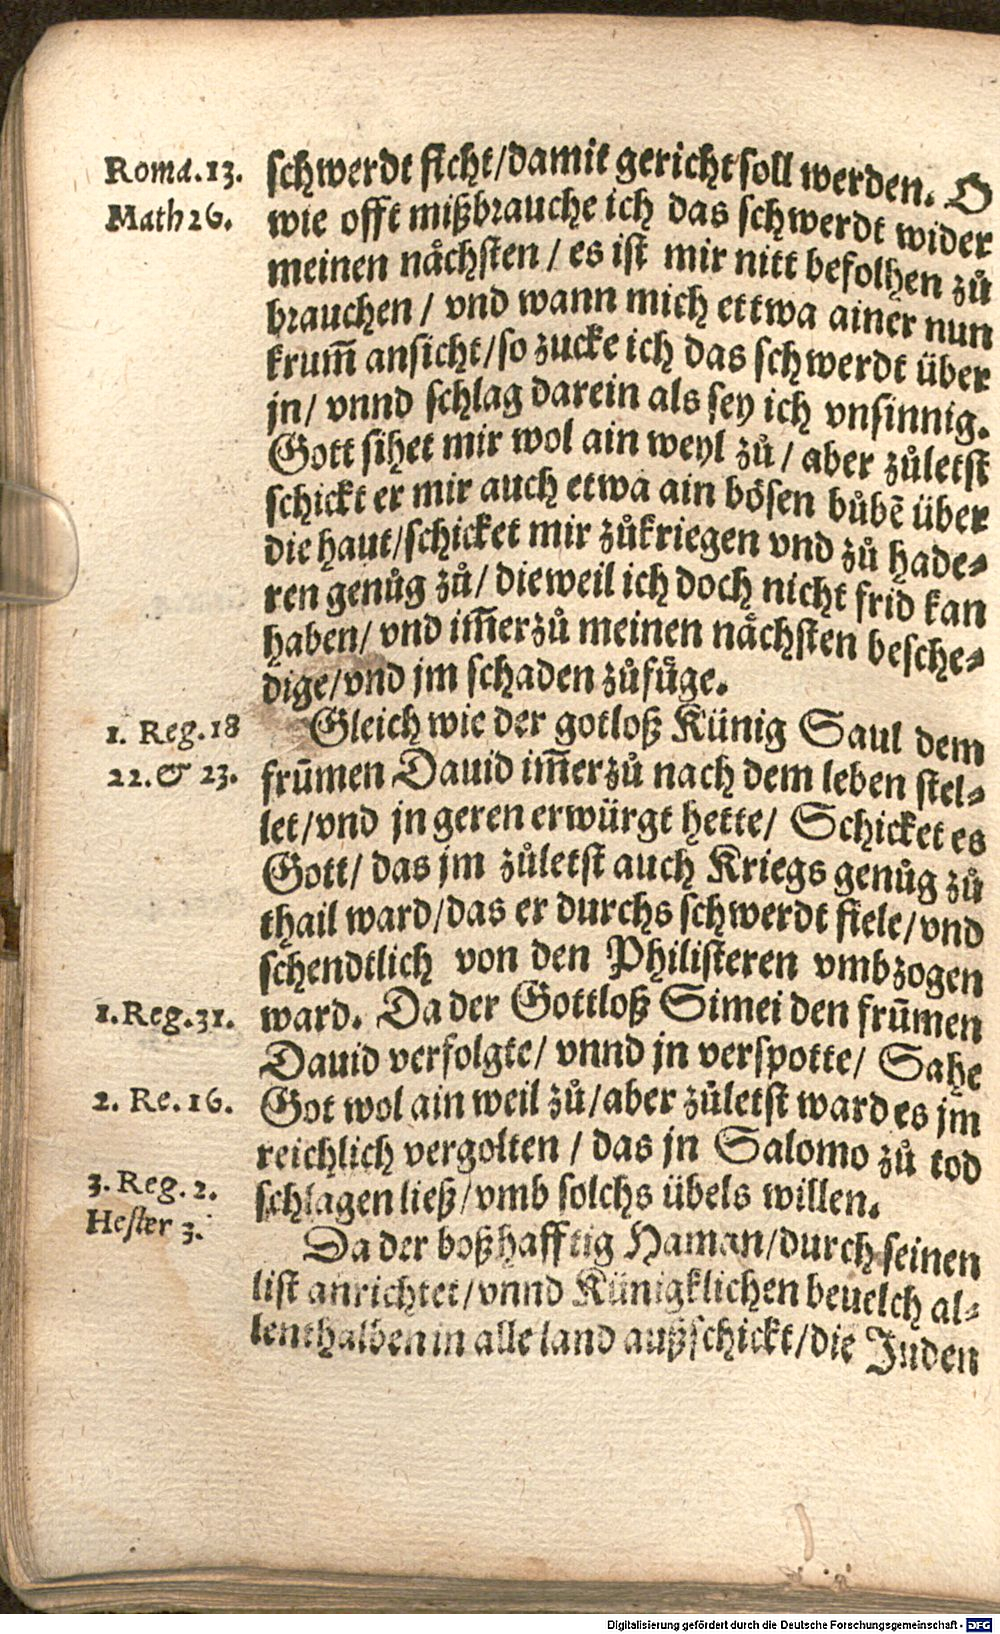 Roma. 13.
Math 26.
schwerdt ficht/damit gericht soll werden. O
wie offt mißbrauche ich das schwerdt wider
meinen nåchsten / es ist mir nitt befolhen zů
brauchen / vnd wann mich ettwa ainer nun
krum̅ ansicht/so zucke ich das schwerdt über
jn/ vnnd schlag darein als sey ich vnsinnig.
Gott sihet mir wol ain weyl zů/ aber zůletst
schickt er mir auch etwa ain bösen bůbẽ über
die haut/schicket mir zůkriegen vnd zů hade⸗
ren genůg zů/ dieweil ich doch nicht frid kan
haben/ vnd im̅erzů meinen nåchsten besche⸗
dige/vnd jm schaden zůfüge.
1. Reg. 18
22. & 23.
Gleich wie der gotloß Künig Saul dem
frūmen Dauid im̅erzů nach dem leben stel⸗
let/vnd jn geren erwürgt hette/ Schicket es
Gott/ das jm zůletst auch Kriegs genůg zů
thail ward/das er durchs schwerdt fiele/vnd
schendtlich von den Philisteren vmbzogen
1. Reg. 31.
ward. Da der Gottloß Simei den frūmen
Dauid verfolgte/ vnnd jn verspotte/ Sahe
2. Re. 16.
Got wol ain weil zů/aber zůletst ward es jm
reichlich vergolten / das jn Salomo zů tod
3. Reg. 2.
schlagen ließ/vmb solchs übels willen.
Hester 3.
Da der boßhafftig Haman/durch seinen
list anrichtet/vnnd Künigklichen beuelch al⸗
lenthalben in alle land außschickt/die Juden
Digitalisierung gefördert durch die Deutsche Forschungsgemeinschaft - DFG